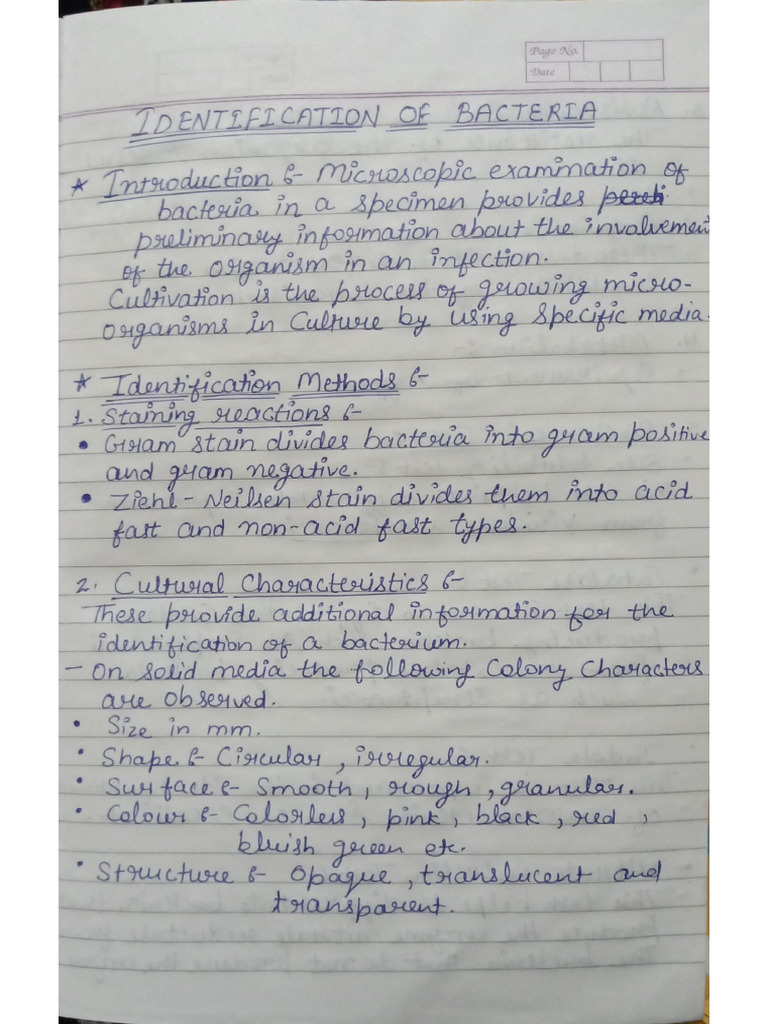 Page No.
Date
IDENTIFICATION OF BACTERIA
* Introduction :- Microscopic examination of
bacteria in a specimen provides
preliminary information about the involvement
of the organism in an infection.
Cultivation is the process of growing micro-
organisms in culture by using specific media.
* Identification Methods :-
1. Staining reactions :-
• Gram stain divides bacteria into gram positive
and gram negative.
• Ziehl-Neilsen stain divides them into acid
fast and non-acid fast types.
2. Cultural Characteristics :-
These provide additional information for the
identification of a bacterium.
- On solid media the following Colony Characters
are observed.
• Size in mm.
• Shape :- Circular, irregular.
• Surface :- Smooth, rough, granular.
• Colour :- Colorless, pink, black, red,
bluish green etc.
• Structure :- Opaque, translucent and
transparent.